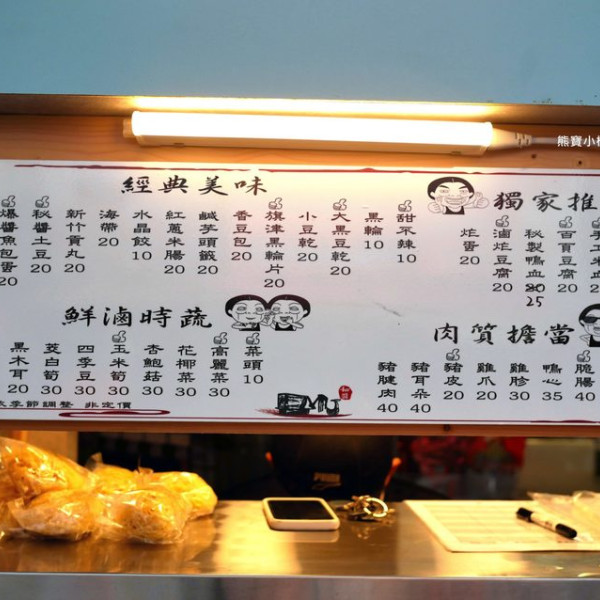 熊寶小
經典美味
爆醬魚包蛋 20
秘醬土豆 20
新竹貢丸 20
海帶 20
水晶餃 10
紅蔥米腸 20
鹹芋頭籤 20
香豆包 20
旗津黑輪片 20
小豆乾 20
大黑豆乾 20
黑輪 10
甜不辣 10
獨家推
炸蛋 20
滷炸豆腐 20
秘製鴨血 25
百頁豆腐 20
20
鮮滷時蔬
黑木耳 20
茭白筍 30
四季豆 30
玉米筍 30
杏鮑菇 30
花椰菜 30
高麗菜 30
菜頭 10
季節調整 非定價
肉質擔當
豬腱肉 40
豬耳朵 40
豬皮 20
雞爪 20
雞胗 30
鴨心 35
脆腸 40